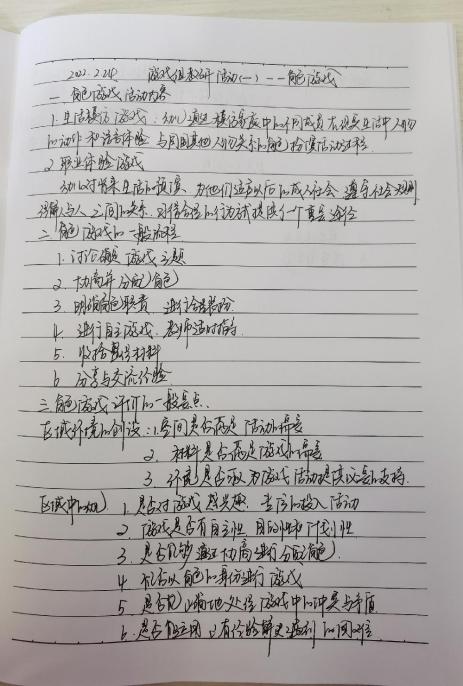 2022.2.24 游戏组教研活动(一) --角色游戏
一 角色游戏活动内容
1.生活模仿游戏:幼儿通过模仿家庭中的不同成员在现实生活中人物
的动作和语言体验与周围其他人物关系的角色扮演活动过程
2 职业体验游戏
幼儿对将来生活的预演,为他们适应以后的成人社会,遵守社会规则
理解人与人之间的关系,对信合理的行为尝试提供一个真实途径
二、角色游戏的一般流程
1.讨论确定游戏主题
2.协商并分配角色
3.明确角色职责 进行合理装扮
4.进行自主游戏,老师适时指导.
5.收拾整理材料
6 分享与交流经验
三.角色游戏评价的一般要点、
区域环境的创设:1.空间是否满足活动的需要
2.材料是否满足游戏的需要
3.环境是否可以为游戏活动提供必要的支持.
区域中的幼儿 1.是否对游戏感兴趣.专注的投入活动
2.游戏是否有自主性 目的性和计划性
3.是否能够通过协商进行分配角色
4 能否以角色的身份进行游戏
5 是否能正确地处理游戏中的冲突与矛盾
6.是否能运用已有经验解决遇到的困难